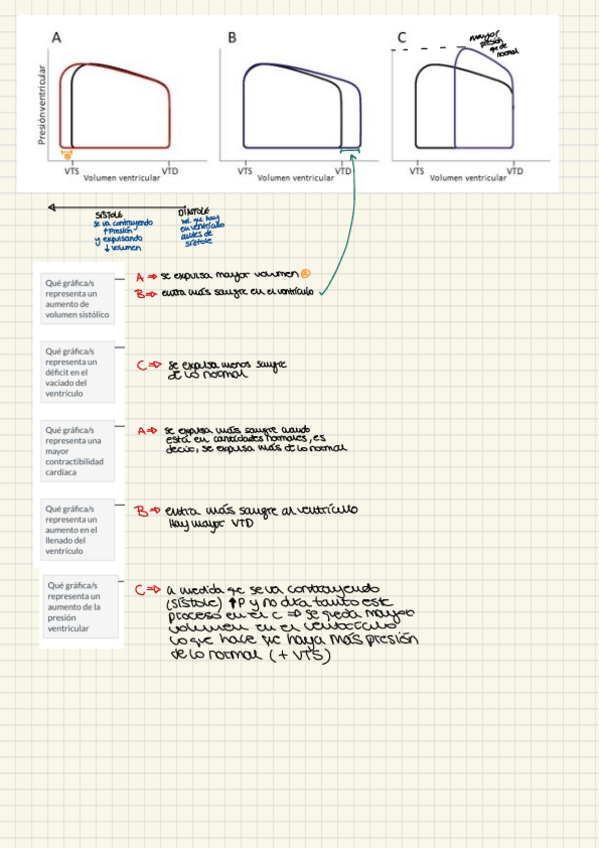 A
B
C
mayor
presión
que de
normal
Presión ventricular
VTS
VTD
Volumen ventricular
VTS
VTD
Volumen ventricular
VTS
VTD
Volumen ventricular
SÍSTOLE
se va contrayendo
↑Presión
y expulsando
↓ volumen
DÍASTOLE
vol. que hay
en ventrículo
antes de
sístole
Qué gráfica/s
representa un
aumento de
volumen sistólico
A ⇒ se expulsa mayor volumen
B ⇒ entra más sangre en el ventrículo
Qué gráfica/s
representa un
déficit en el
vaciado del
ventrículo
C ⇒ se expulsa menos sangre
de lo normal
Qué gráfica/s
representa una
mayor
contractibilidad
cardiaca
A ⇒ se expulsa más sangre cuando
está en cantidades normales, es
decir, se expulsa más de lo normal
Qué gráfica/s
representa un
aumento en el
llenado del
ventrículo
B ⇒ entra más sangre al ventrículo
Hay mayor VTD
Qué gráfica/s
representa un
aumento de la
presión
ventricular
C ⇒ a medida qe se va contrayendo
(sístole) ↑P y no dura tanto este
proceso en el C ⇒ se queda mayor
volumen en el ventrículo
lo que hace qe haya más presión
de lo normal (+ VTS)